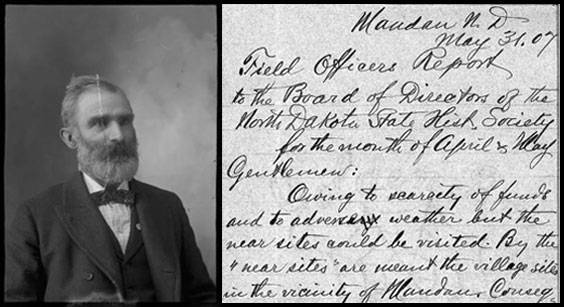 Mandan N. D
May 31. 07
Field Officers Report
to the Board of Directors of the
North Dakota State Hist. Society
for the month of April & May
Gentlemen:
Owing to scarcity of funds
and to adverse weather but the
near sites could be visited. By the
"near sites" are meant the village sites
in the vicinity of Mandan. Conseq